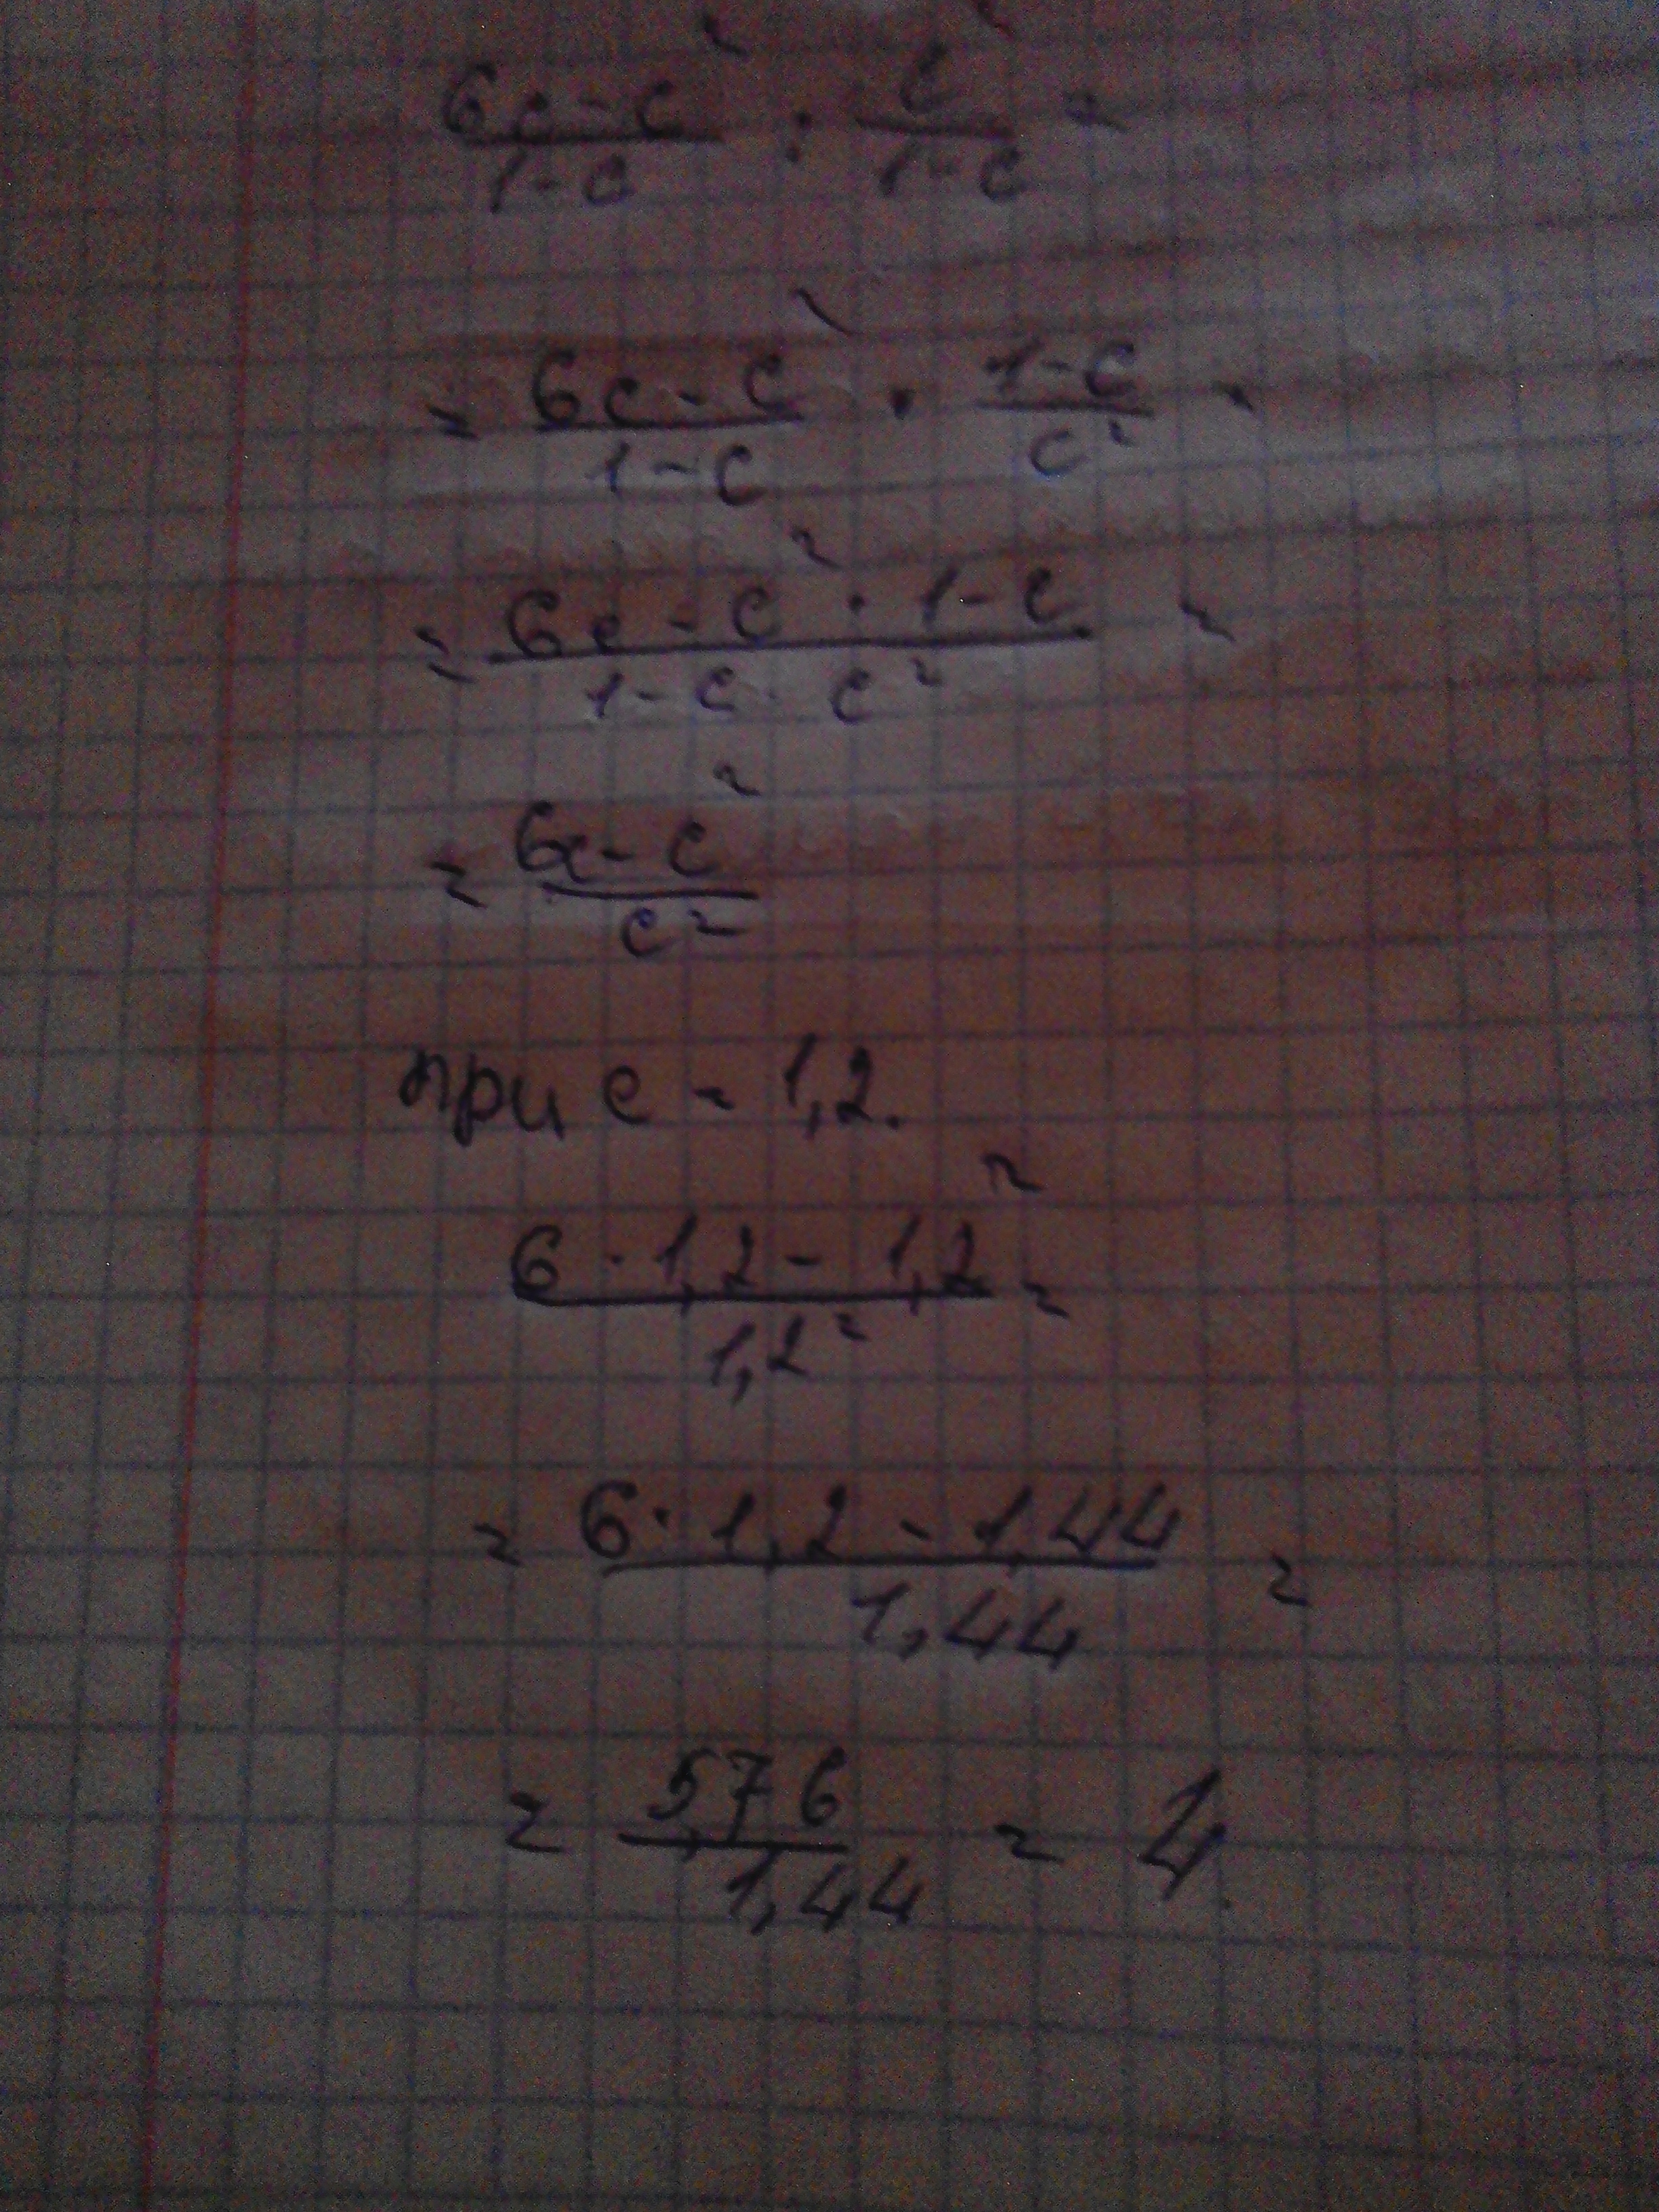 (6c - c²)/(1 - c) : c²/(1 - c) =
= (6c - c²)/(1 - c) · (1 - c)/c² =
= (6c - c² · 1 - c)/(1 - c · c²) =
= (6c - c²)/c²
при c = 1,2.
(6 · 1,2 - 1,2²)/1,2² =
= (6 · 1,2 - 1,44)/1,44 =
= 5,76/1,44 = 4.